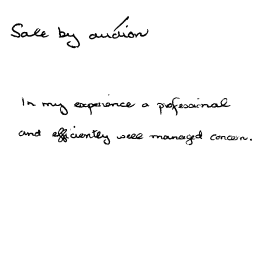 Sale by auction
In my experience a professional
and efficiently well managed concern.